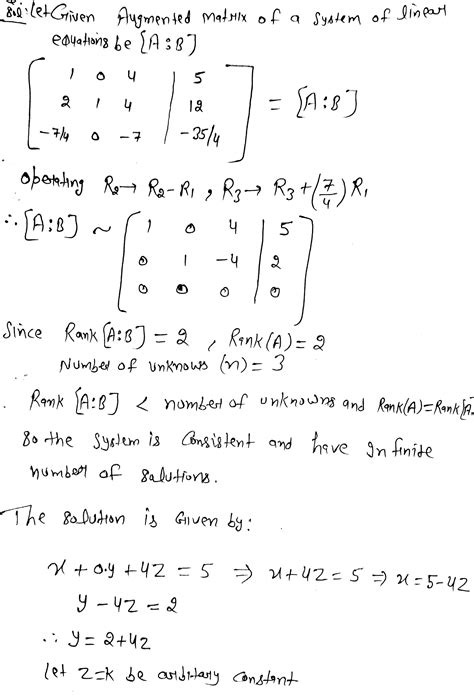 Sol: let Given Augmented Matrix of a system of linear
equations be [A:B]
1 0 4 | 5
2 1 4 | 12 = [A:B]
-7/4 0 -7 | -35/4
Operating R2→ R2-R1 , R3→ R3+(7/4) R1
∴ [A:B] ~
1 0 4 | 5
0 1 -4 | 2
0 0 0 | 0
Since Rank [A:B] = 2 , Rank(A) = 2
Number of unknows (n) = 3
. Rank [A:B] < number of unknowns and Rank(A)=Rank[A.
So the system is Consistent and have Infinite
number of Solutions.
The Solution is Given by:
x + 0.y + 4z = 5 ⇒ x+4z = 5 ⇒ x=5-4z
y - 4z = 2
∴ y = 2+4z
let z=k be arbitary constant